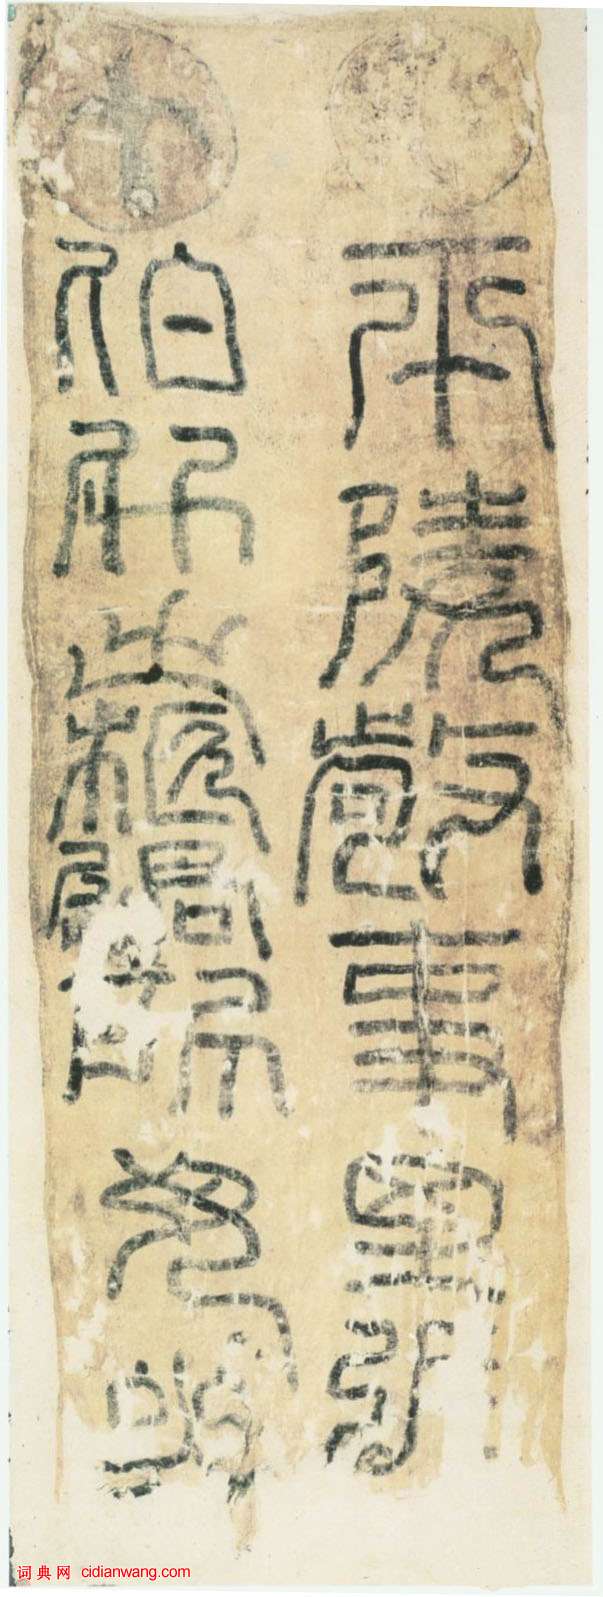 平陵敬事里張
伯升之柩過所毋哭
词典网 cidianwang.com